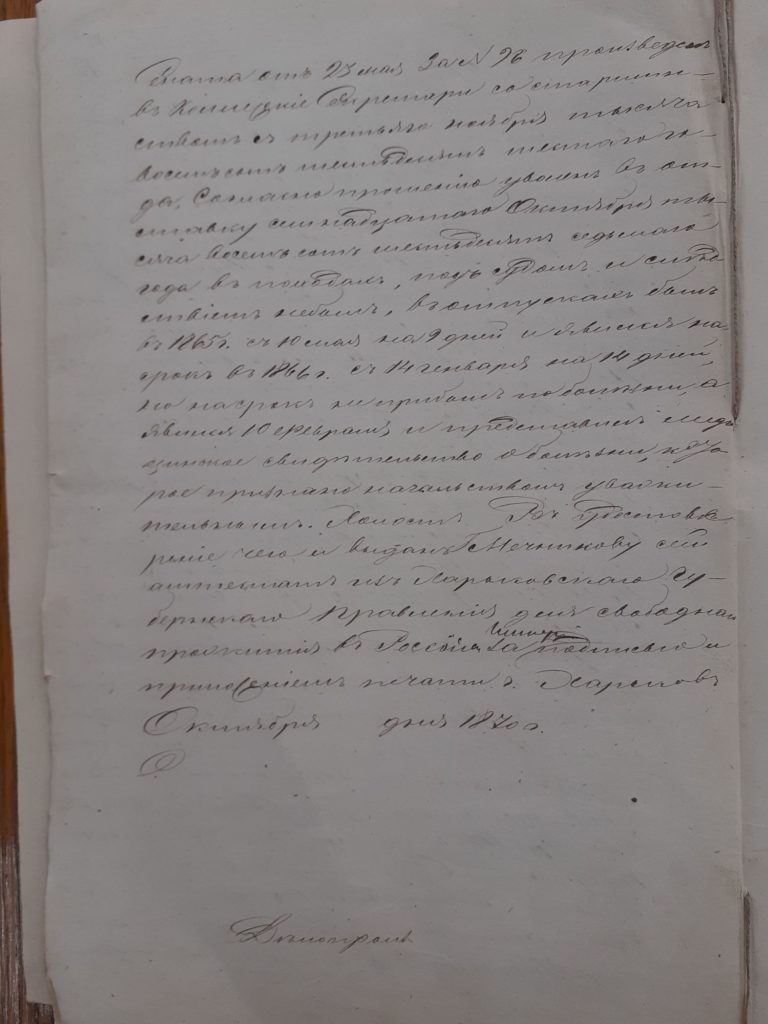 Сената отъ 23 мая за № 96 произведенъ
въ Коллежскіе Секретари со старшин-
ствомъ съ третьяго ноября тысяча
восемьсотъ шестьдесятъ шестаго го-
да. Согласно прошенію уволенъ въ от-
ставку семнадцатаго Октября ты-
сяча восемьсотъ шестьдесятъ седьмаго
года въ походахъ, подъ судомъ и слѣд-
ствіемъ небылъ, въ отпускахъ былъ
въ 1865 г. съ 10 мая на 9 дней и явился на
срокъ въ 1866 г. съ 14 генваря на 14 дней,
но на срокъ не прибылъ по болезни, а
явился 10 февраля, и представилъ меди
цинское свидѣтельство о болезни, кото
рое признано начальствомъ уважи-
тельнымъ. Холостъ. Въ удостовѣ
реніе чего и выданъ Мечникову сей
аттестатъ изъ Харьковскаго Гу-
бернскаго Правленія для свободнаго
прожитія въ Россіи за подписью и
приложеніемъ печати г. Харьковъ
Октября дня 1870 г.